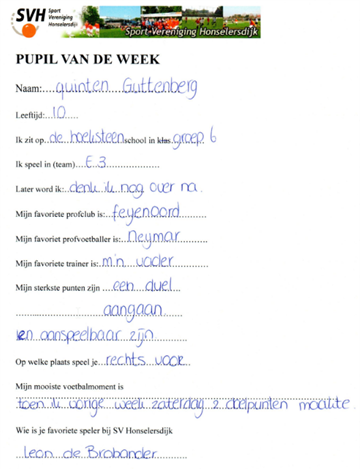 SVH Sport Vereniging Honselersdijk
Sport Vereniging Honselersdijk
PUPIL VAN DE WEEK
Naam:....quinten Guttenberg
Leeftijd:...10....
Ik zit op..de hoeksteen school in klas groep 6
Ik speel in (team)...E 3...................
Later word ik:..denk ik nog over na.
Mijn favoriete profclub is:..feyenoord.........
Mijn favoriet profvoetballer is:..Neymar.........
Mijn favoriete trainer is:..m'n vader...........
Mijn sterkste punten zijn ....een duel....
........................aangaan..........
en aanspeelbaar zijn
Op welke plaats speel je..rechts voor....
Mijn mooiste voetbalmoment is
toen ik vorige week zaterdag 2 doelpunten maakte.
Wie is je favoriete speler bij SV Honselersdijk
Leon de Brabander